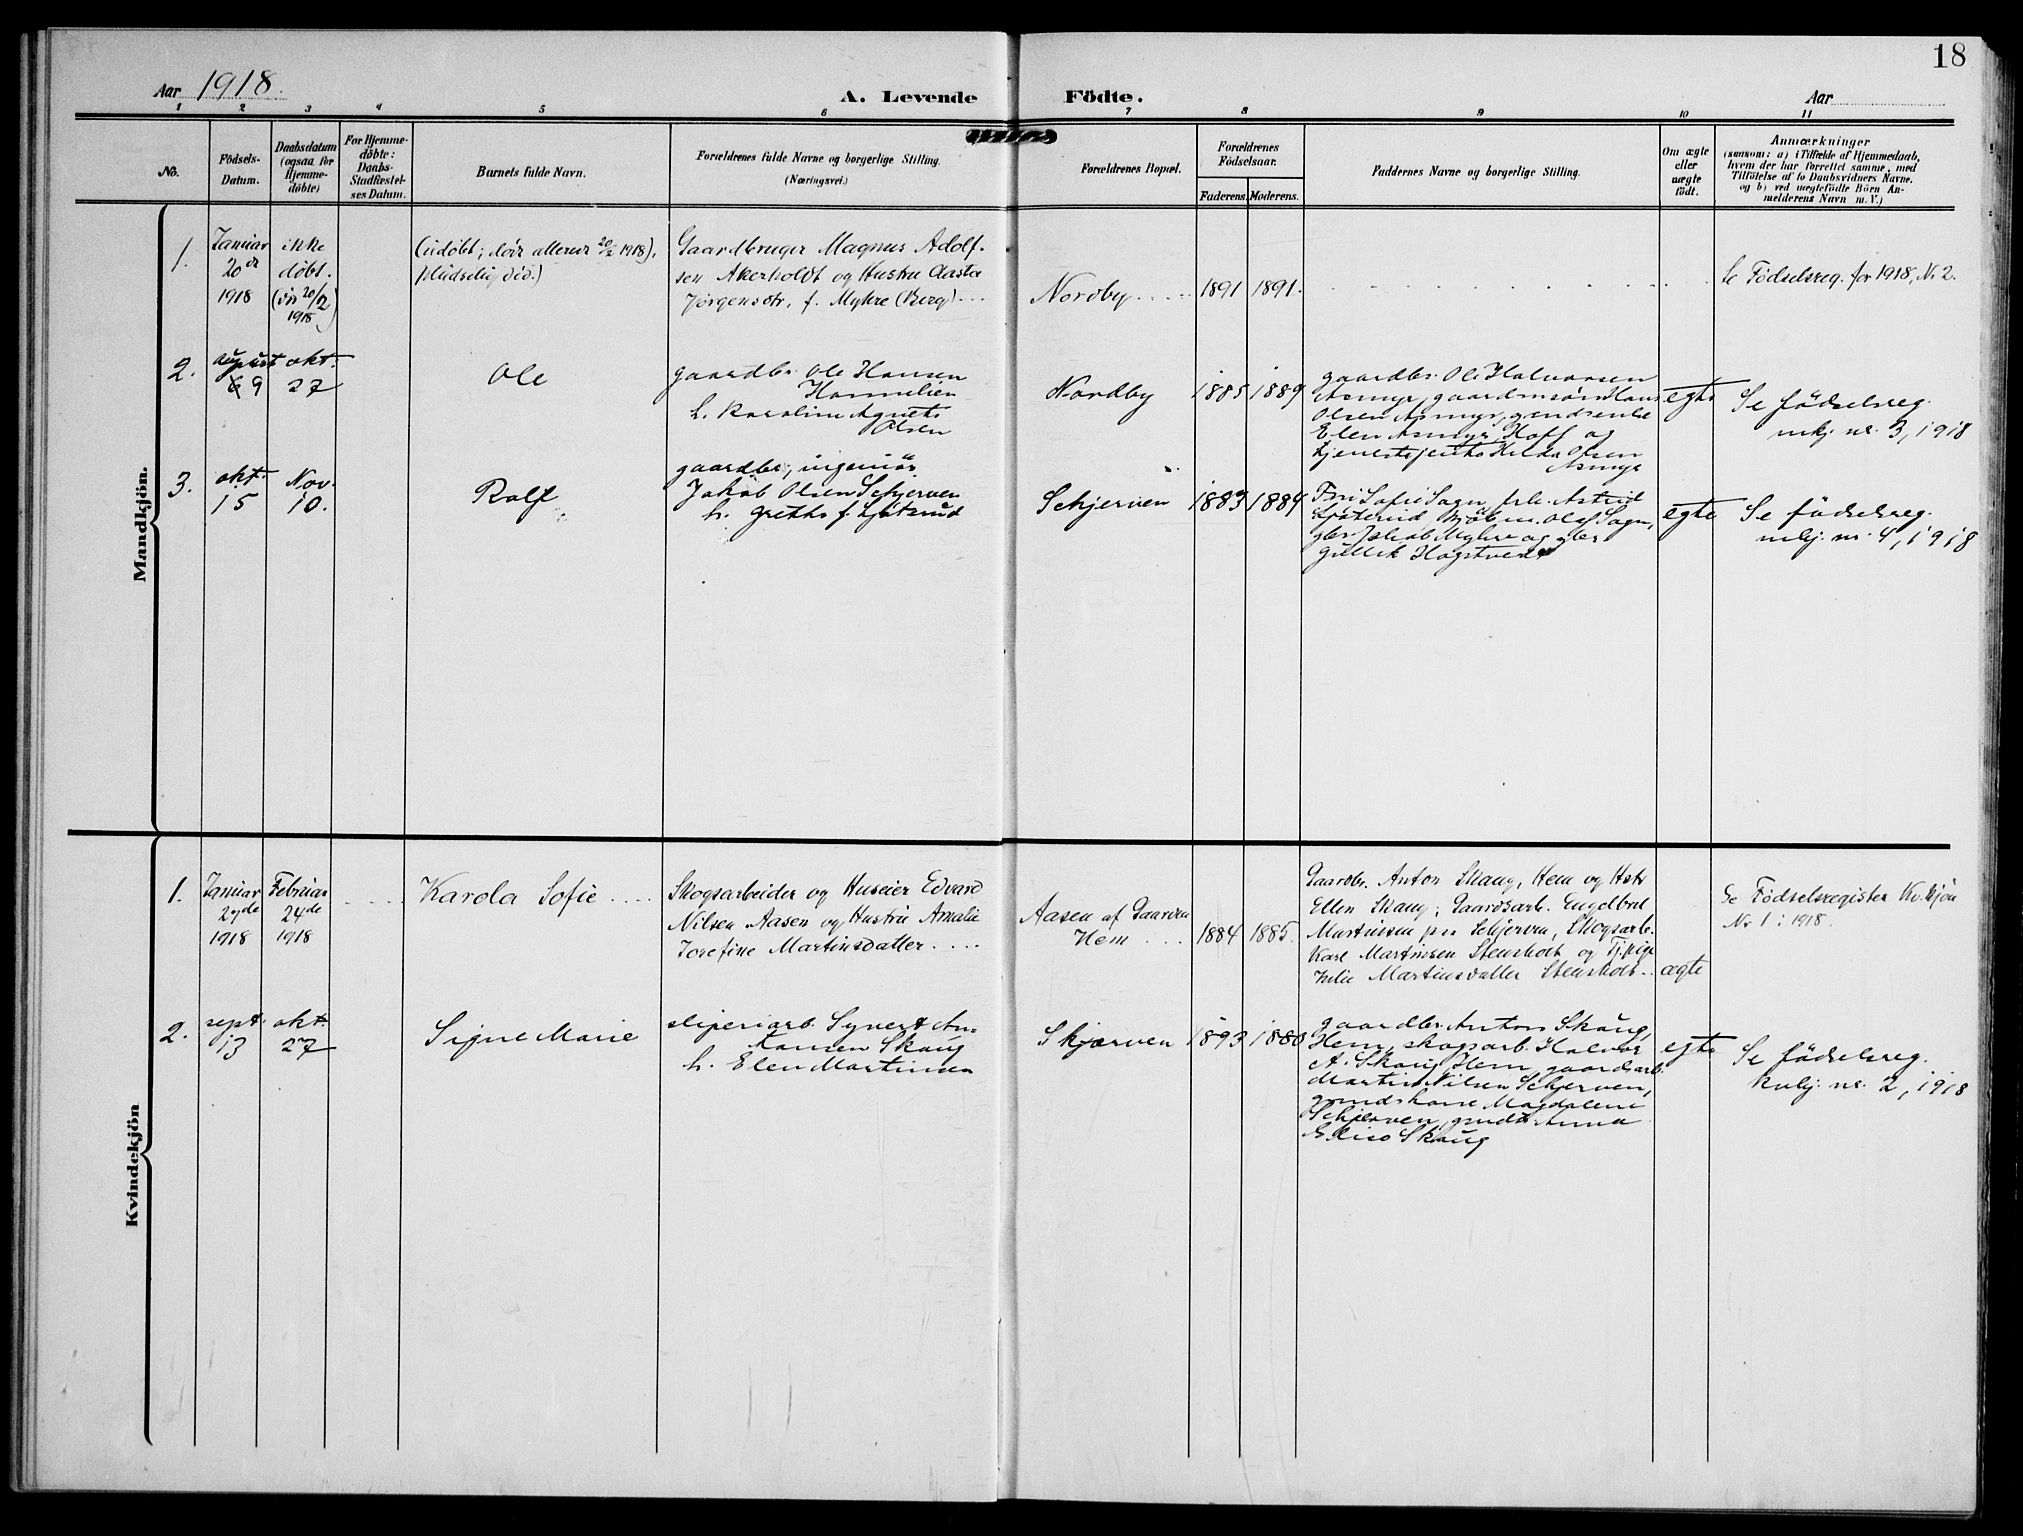 18
Aar 1918.
A. Levende Födte.
Aar
1 2 3 4 5 6 7 8 9 10 11
No.
Födsels-
Datum.
Daabsdatum
(ogsaa for
Hjemme-
döbte)
For Hjemme-
döbte:
Daabs-
Stadfæstel-
ses Datum.
Barnets fulde Navn.
Forældrenes fulde Navne og borgerlige Stilling.
(Næringsvei.)
Forældrenes Bopæl.
Forældrenes
Födselsaar.
Faderens. Moderens.
Faddernes Navne og borgerlige Stilling.
Om ægte
eller
uægte
födt.
Anmærkninger
(saasom: a) i Tilfælde af Hjemmedaab,
hvem der har forrettet samme, med
Tilföielse af to Daabsvidners Navne,
og b) ved uægtefödte Börn An-
melderens Navn m. V.)
Mandkjön.
1.
Januar
20de
1918
ikke
døbt.
(død 20/2
1918)
(udøbt; døde allerede 20/2 1918),
pludselig død.)
Gaardbruger Magnus Adolf-
sen Akerholdt og Hustru Aasta
Jørgensdtr, f. Myhre (Berg) ...
Nordby
1891
1891.
Se Födselsreg. for 1918, Nr 2.
2.
august
9
okt.
27
Ole
gaardbr. Ole Hansen
Hannelien
h. Karoline Agnete
Olsen
Nordby
1885
1889
gaardbr. Ole Halvorsen
Asmyr, gaardmsøn Hans
Olsen Asmyr,
Elen Asmyr Hoff og
Hilda Olsen
Asmyr
egte
Se födselsreg.
mkj. nr. 3, 1918
3.
okt.
15
Nov.
10.
Rolf
gaardbr., ingeniör
Jakob Olsen Schjerven
h. Grethe f. Ljøterud
Schjerven
1883
1884
Fru Sofie Sagn, frk. Astrid
Ljøterud, Olaf Sagn,
gbr. Jakob Myhre og gbr
Gullik Hogstvedt
egte
Se födselsreg.
mkj. nr. 4, 1918
Kvindekjön
1.
Januar
27de
1918
Februar
24de
1918
Karola Sofie
Skogsarbeider og Huseier Edvard
Nilsen Aasen og Hustru Amalie
Josefine Martinsdatter
Aasen af Gaarden
Hem
1884
1885.
Gaardbr. Anton Skaug, Hem og Hstr
Ellen Skaug; Gaardsarb. Engelbret
Martinsen paa Schjerven, Skogsarb.
Karl Martinsen Stensholt og Tj.pige
Julie Martinsdatter Stensholt.
ægte
Se Födselsregister Kv.kjön
Nr 1: 1918.
2.
sept.
13
okt.
27
Signe Marie
sliperiarb. Synert An-
tonsen Skaug
h. Elen Martinsen
Skjærven
1893
1880
gaardbr. Anton Skaug,
Hem, skogsarb. Halvor
A. Skaug, Hem, gaardsarb.
Martin Nilsen Schjerven,
Magdalene
Schjerven, Anna
Elise Skaug
egte
Se födselsreg.
kvkj. nr. 2, 1918